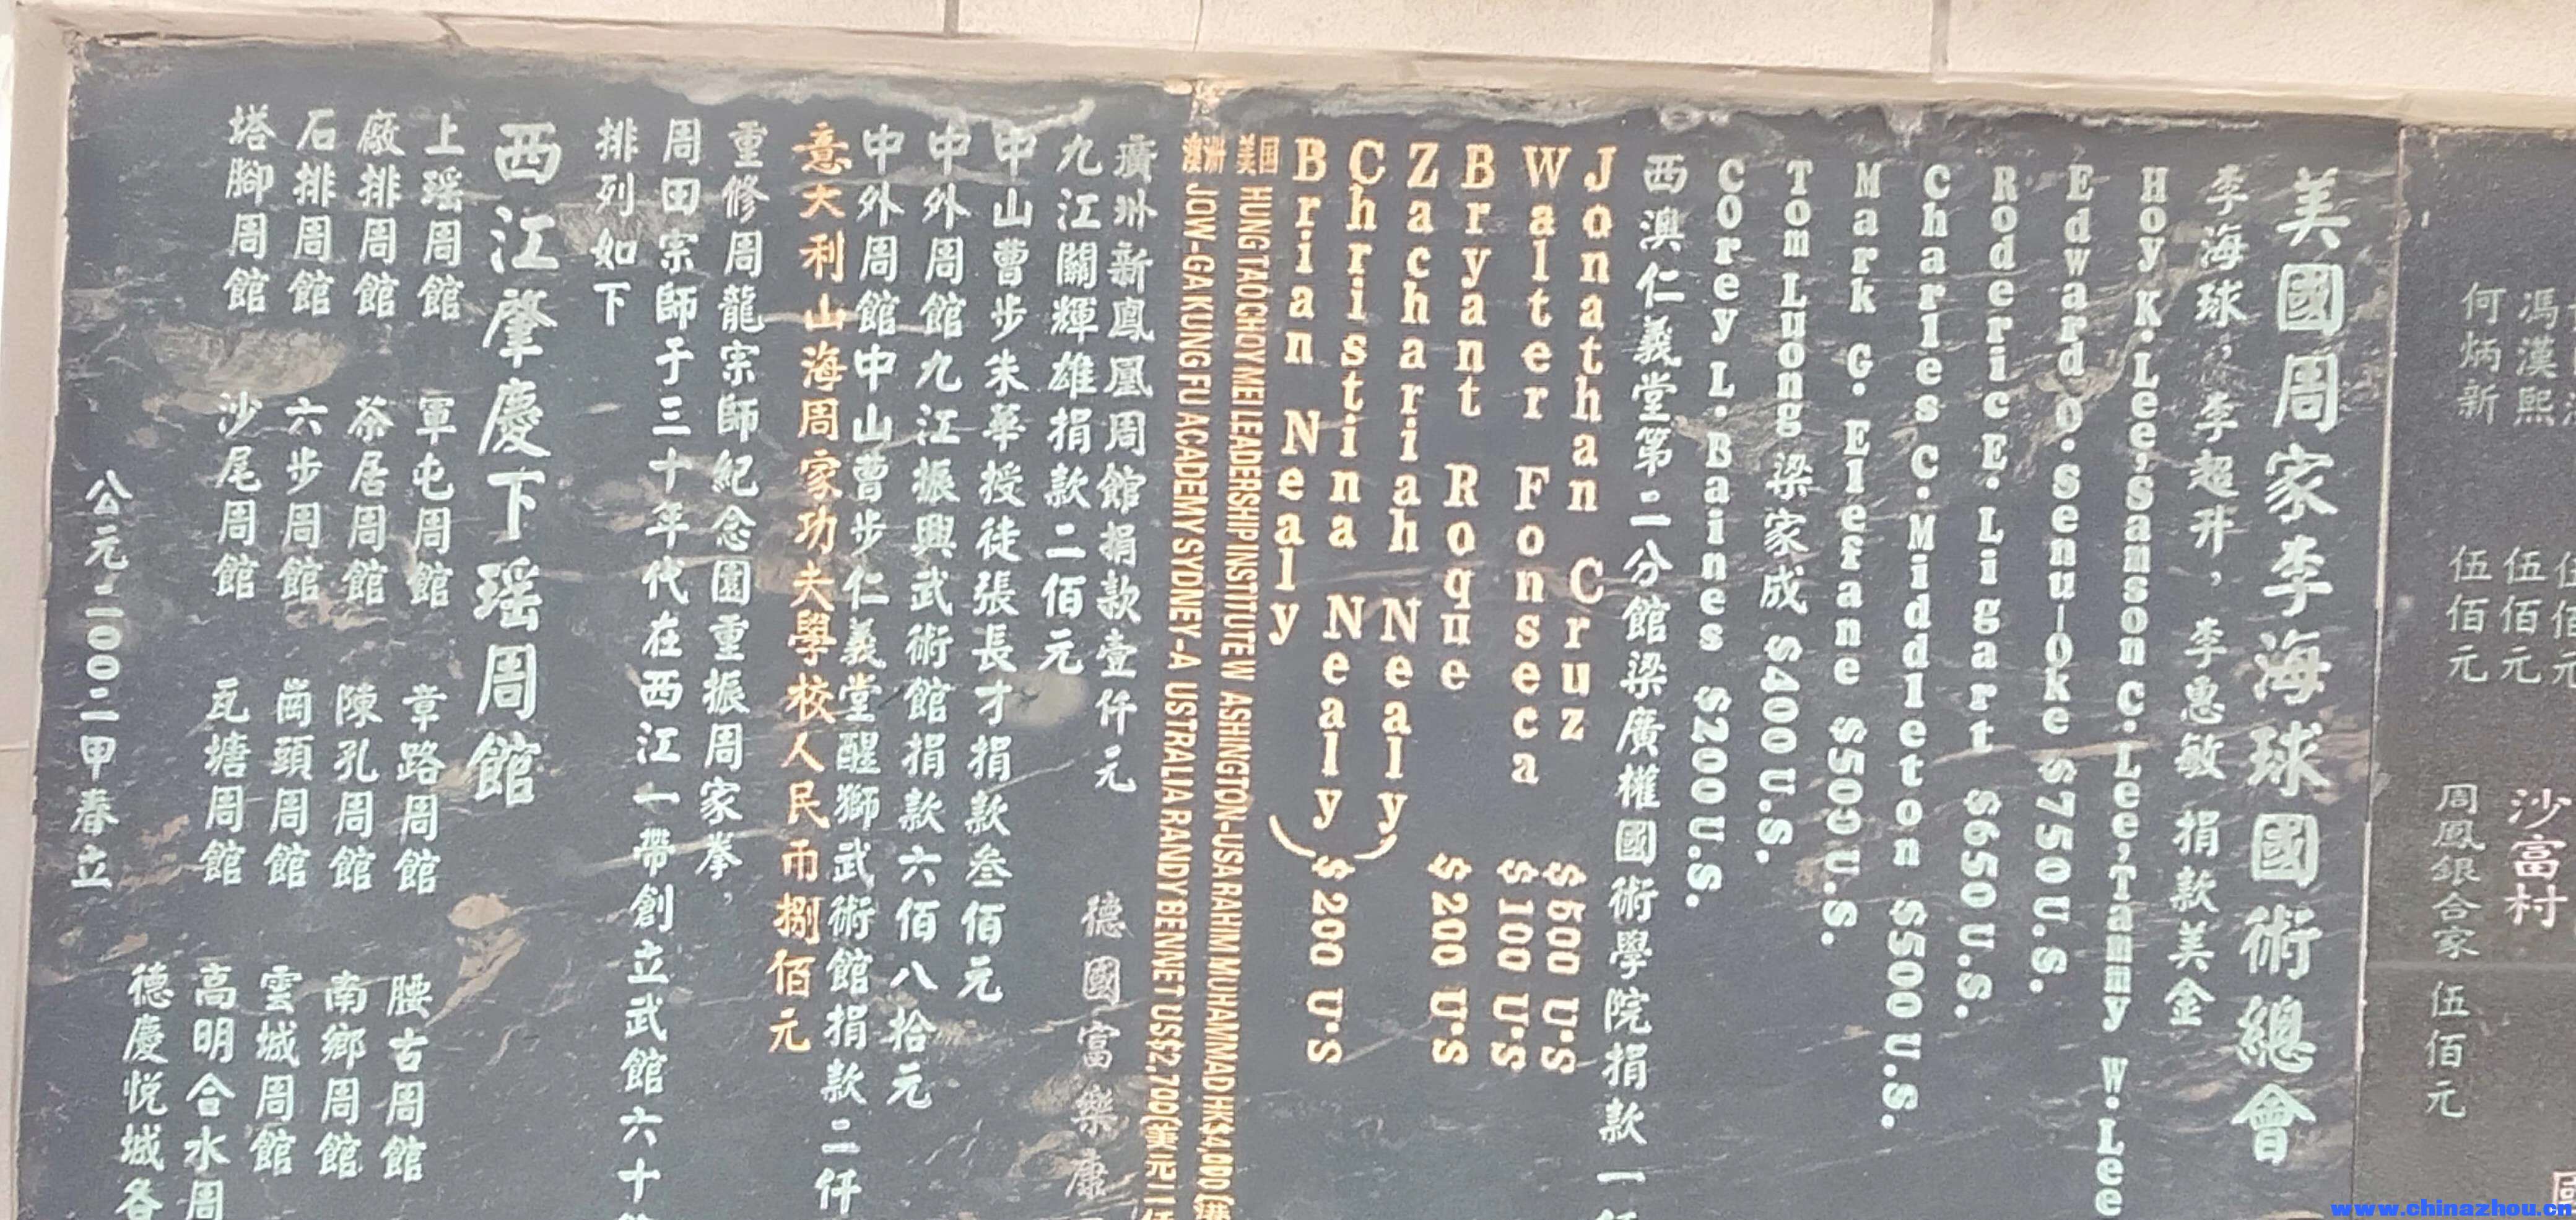 馮漢熙
伍佰元
何炳新
伍佰元
沙富村
周鳳銀合家 伍佰元
美國周家李海球國術總會
李海球，李超升，李惠敏 捐款美金
Hoy K.Lee,Samson C.Lee,Tammy W.Lee
Edward O.Senu-Oke $750U.S.
Roderic E.Ligart $650U.S.
Charles C.Middleton $500U.S.
Mark G.Elefane $500U.S.
Tom Luong 梁家成 $400U.S.
COrey L.Baines $200U.S.
西澳仁義堂第二分館梁廣權國術學院捐款一
Jonathan Cruz $500 U.S
Walter Fonseca $100 U.S
Bryant Roque $200 U.S
Zachariah Nealy
Christina Nealy
Brian Nealy
$200 U.S
美国 HUNG TAO CHOY ME LEADERSHIP INSTITUTE W ASHINGTON-USA RAHIM MUHAMMAD HK$4,000(港
澳洲 JOW-GA KUNG FU ACADEMY SYDNEY-A USTRALIA RANDY BENNET US$2,700(美元二
廣州新鳳凰周館捐款壹仟元 德國富樂康
九江關輝雄捐款二佰元
中山曹步朱華授徒張長才捐款叁佰元
中外周館九江振興武術館捐款六佰八拾元
中外周館中山曹步仁義堂醒獅武術館捐款二仟
意大利山海周家功夫學校人民币捌佰元
重修周龍宗師紀念園重振周家拳，
周田宗師于三十年代在西江一帶創立武館六十
排列如下
西江肇慶下瑶周館
上瑶周館 軍屯周館 章路周館 腰古周館
廠排周館 茶居周館 陳孔周館 南鄉周館
石排周館 六步周館 崗頭周館 雲城周館
塔腳周館 沙尾周館 瓦塘周館 高明合水周
德慶悦城各
公元二00二甲春立
www.chinazhou.cn